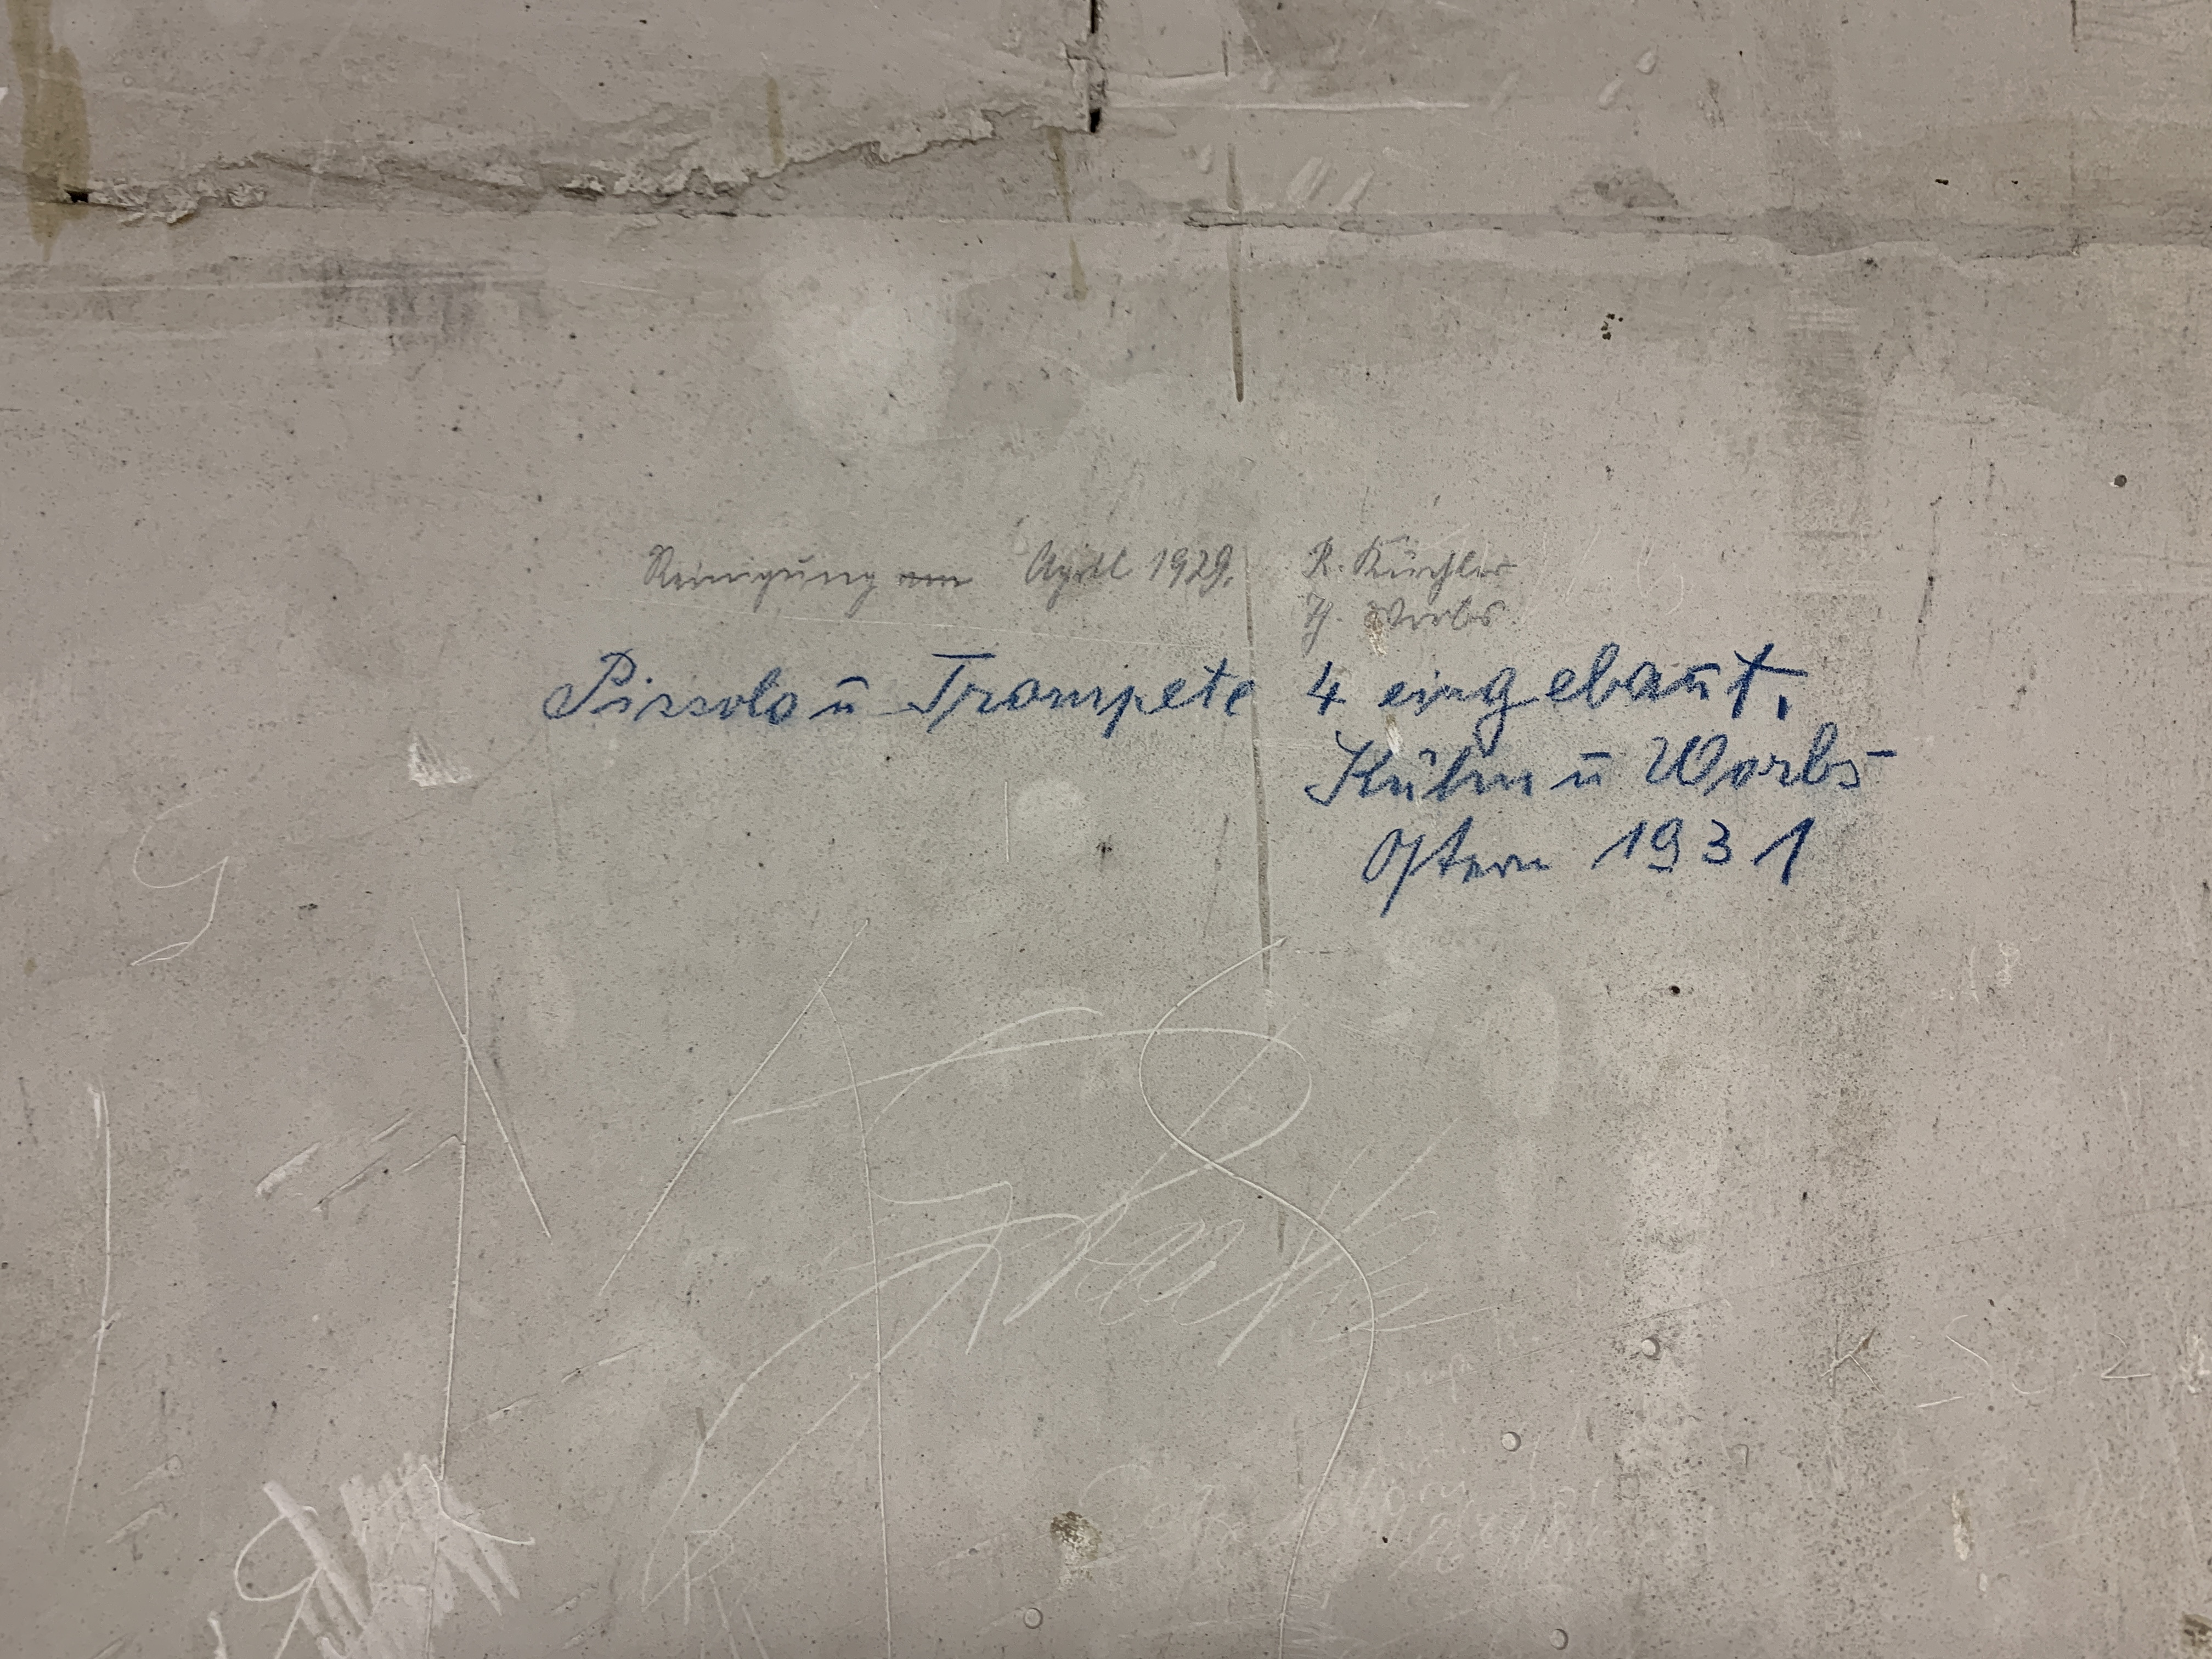 Reinigung am April 1929. R. Küchler
H. Worbs
Piccolo ū Trompete 4 eingebaut.
Kühn ū Worbs
Ostern 1931